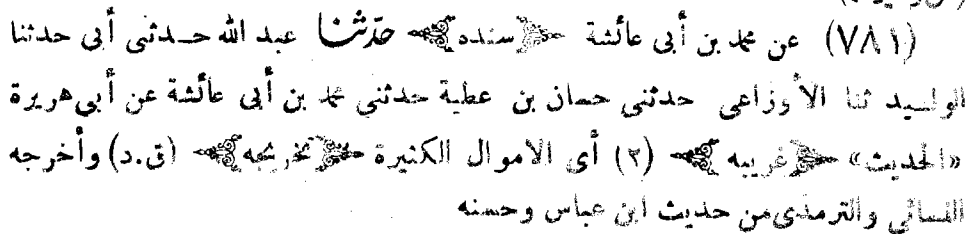 (٧٨١) عن محمد بن أبى عائشة ﴿سنده﴾ حدّثنا عبد الله حدثنى أبى حدثنا
الوليد ثنا الأوزاعى حدثنى حسان بن عطية حدثنى محمد بن أبى عائشة عن أبى هريرة
«الحديث» ﴿غريبه﴾ (٢) أى الاموال الكثيرة ﴿تخريجه﴾ (ق.د) وأخرجه
النسائى والترمذى من حديث ابن عباس وحسنه